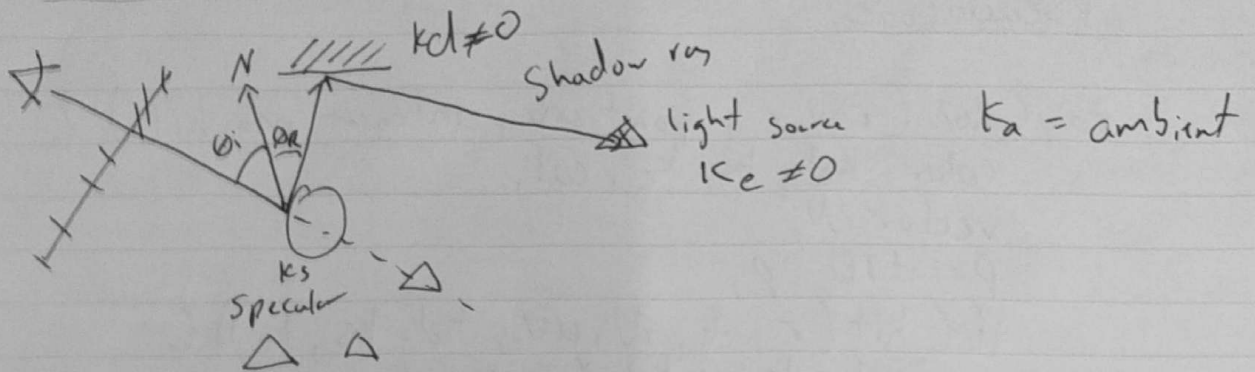 kd≠0
N
Shadow ray
θi
θR
light source
Ke ≠0
Ka = ambient
Ks
Specular